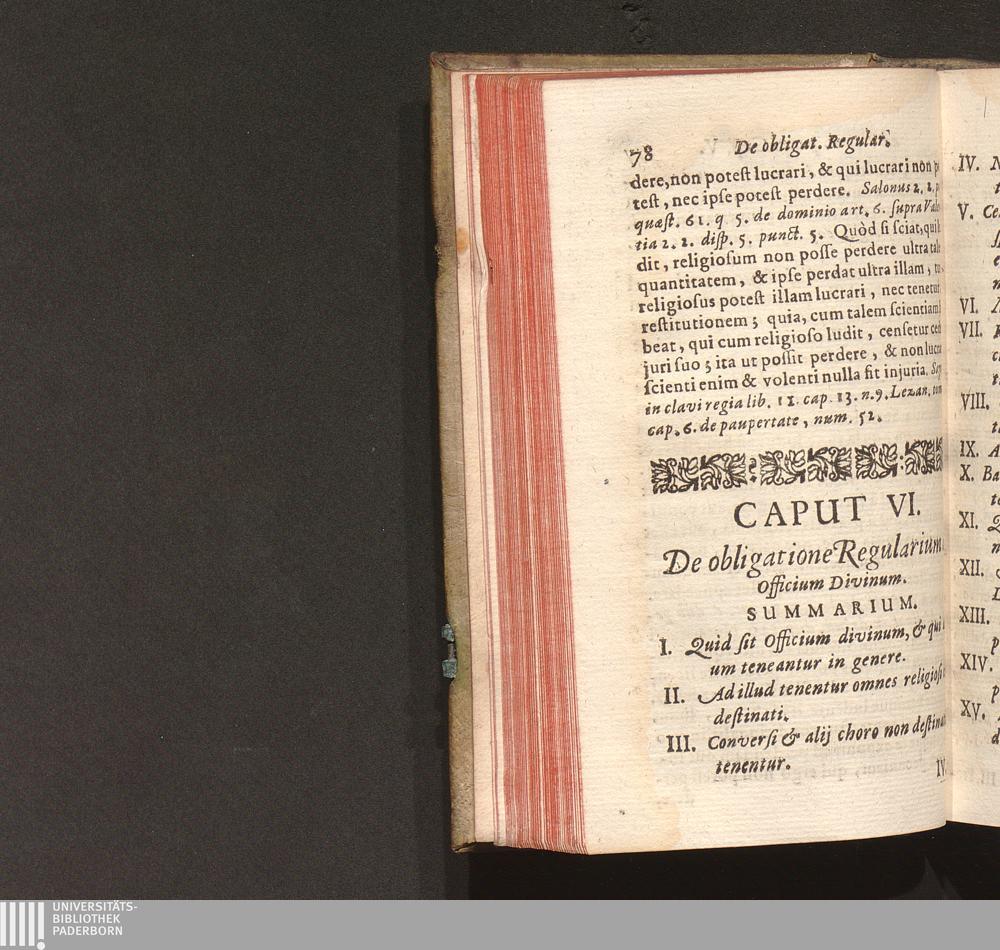 78 De obligat. Regular.
dere, non poteſt lucrari, & qui lucrari non
teſt, nec ipſe poteſt perdere. Salonus 2. 2.
quæſt. 61. q 5. de dominio art. 6. ſupra
tia 2. 2. diſp. 5. punct. 5. Quòd ſi ſciat, qui
dit, religioſum non poſſe perdere ultra
quantitatem, & ipſe perdat ultra illam,
religioſus poteſt illam lucrari, nec
reſtitutionem; quia, cum talem ſcientiam
beat, qui cum religioſo ludit, cenſetur
juri ſuo; ita ut poſſit perdere, & non
ſcienti enim & volenti nulla fit injuria.
in clavi regia lib. 11. cap. 13. n. 9. Lezan.
cap. 6. de paupertate, num. 52.
CAPUT VI.
De obligatione Regularium
Officium Divinum.
SUMMARIUM.
I. Quid ſit Officium divinum, & qui
um teneantur in genere.
II. Ad illud tenentur omnes
deſtinati.
III. Converſi & alij choro non
tenentur.
IV.
V.
VI.
VII.
VIII.
IX.
X.
XI.
XII.
XIII.
XIV.
XV.
UNIVERSITÄTS-
BIBLIOTHEK
PADERBORN